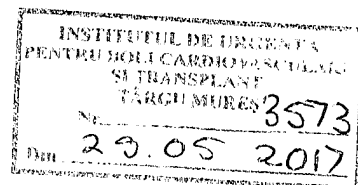 INSTITUTUL DE URGENTA
PENTRU BOLI CARDIOVASCULARE
SI TRANSPLANT
TÂRGU MURES
Nr. 3573
Data 29.05 2017